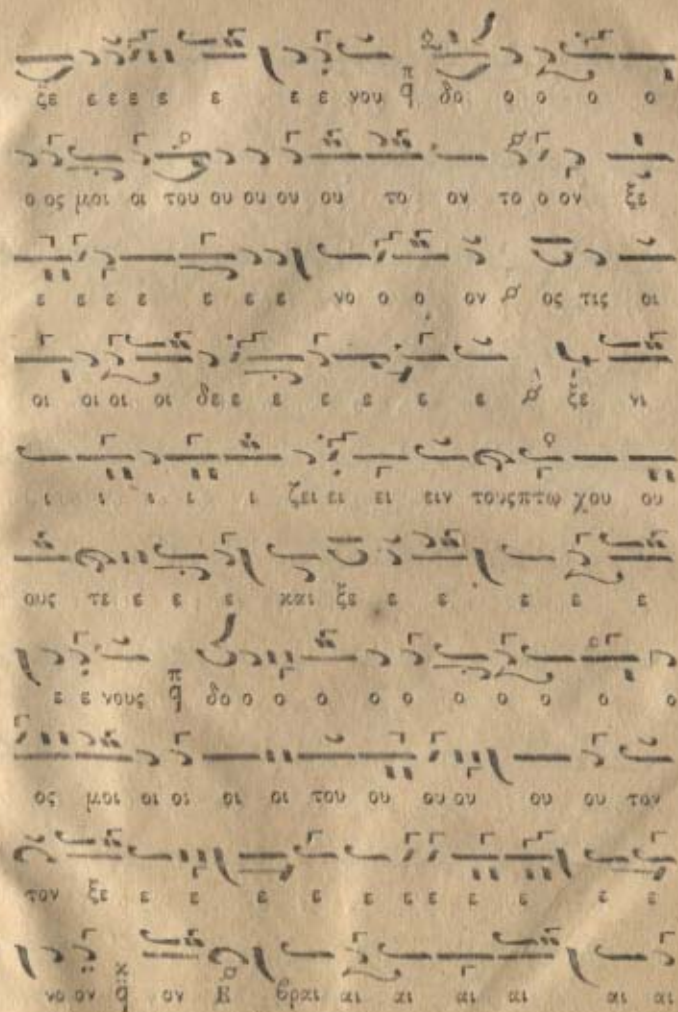 ξε ε ε ε ε ε ε ε νου δο ο ο ο ο
ο ος μοι οι του ου ου ου ου το ον το ο ον ξε
ε ε ε ε ε ε ε νο ο ο ον ος τις οι
οι οι οι οι δε ε ε ε ε ε ε ξε νι
ι ι ι ι ι ζει ει ει ειν τους πτω χου ου
ους τε ε ε ε και ξε ε ε ε ε ε
ε ε νους δο ο ο ο ο ο ο ο ο ο ο
ος μοι οι οι οι οι του ου ου ου ου ου τον
τον ξε ε ε ε ε ε ε ε ε ε ε ε
νο ον ον Ε βραι αι αι αι αι αι αι